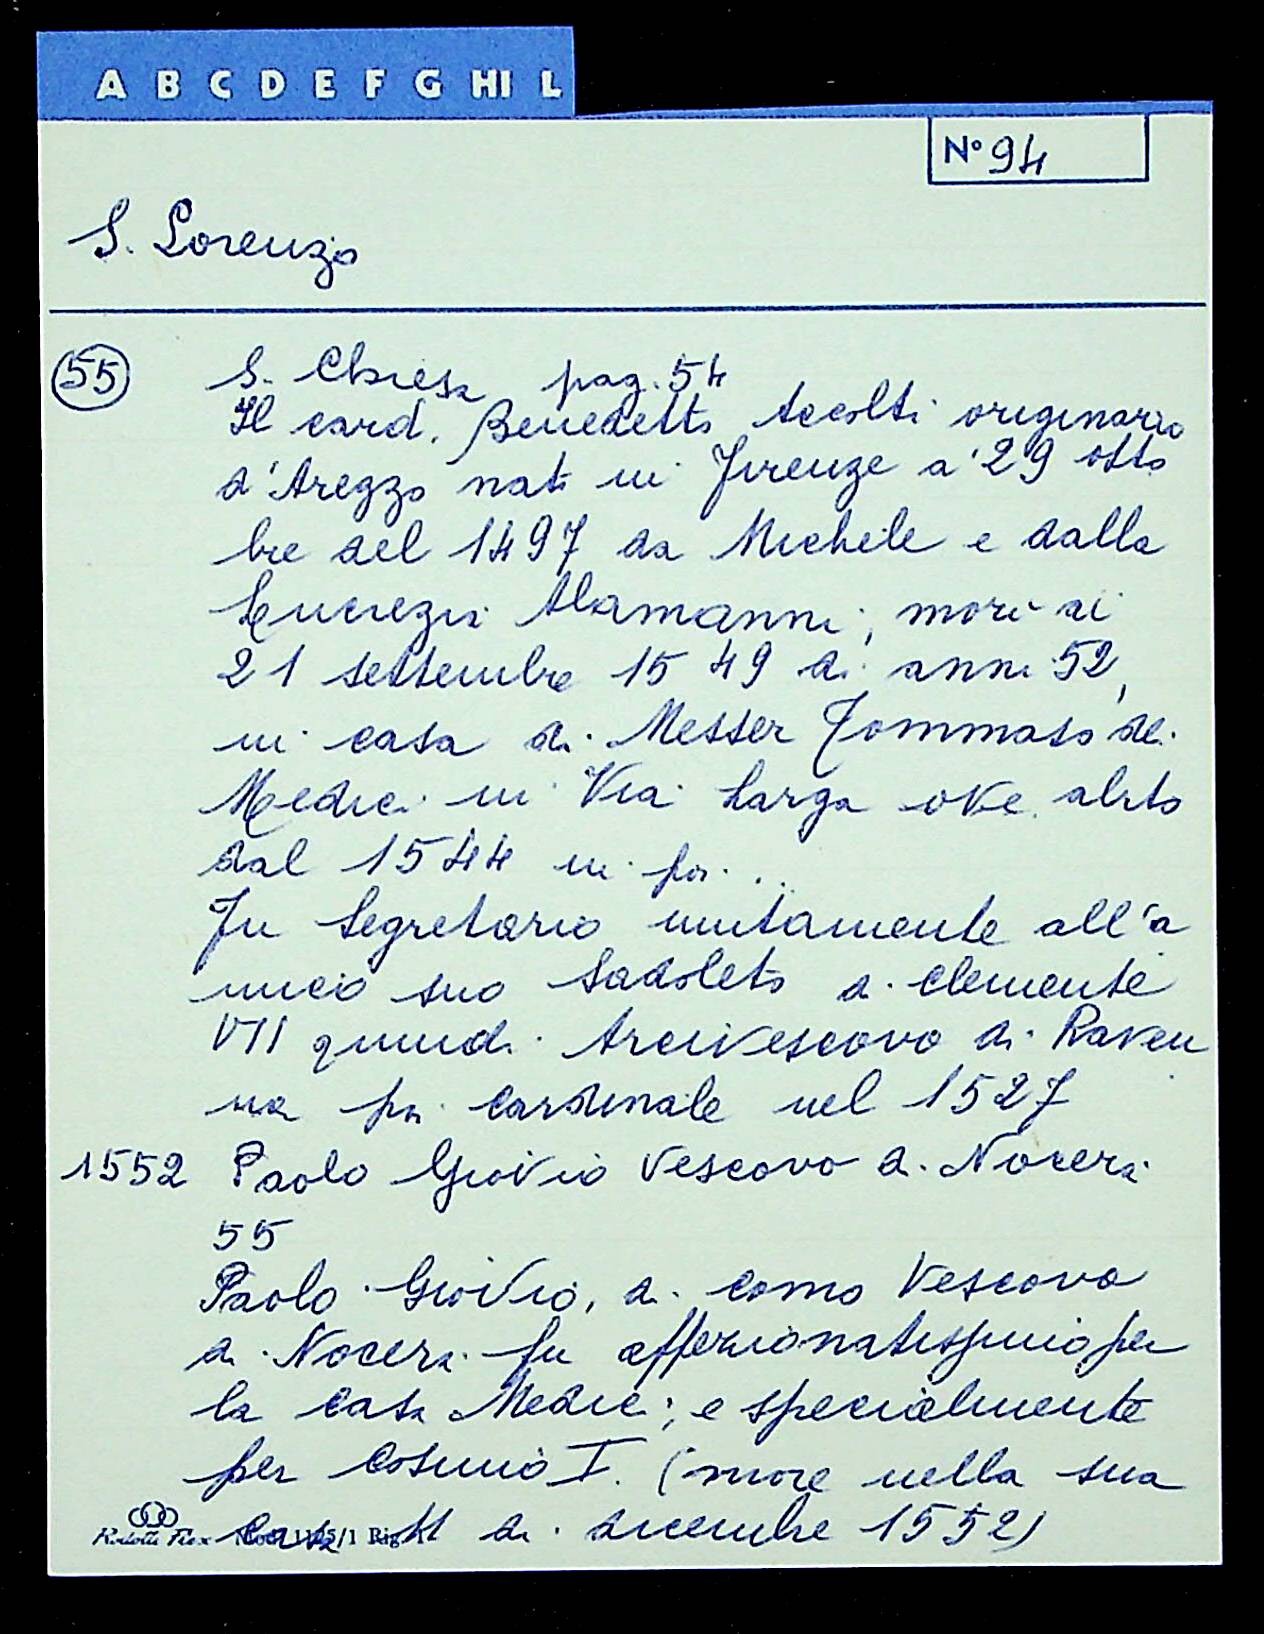 A B C D E F G HI L
N° 94
S. Lorenzo
55 S. Chiesa pag. 54
Il card. Benedetto Accolti originario
d'Arezzo nato in Firenze a' 29 otto
bre del 1497 da Michele e dalla
Lucrezia Alamanni; morì ai
21 settembre 1549 di anni 52,
in casa di Messer Tommaso de
Medici in Via Larga ove abitò
dal 1544 in poi...
Fu Segretario unitamente all'a
mico suo Sadoleto di Clemente
VII quindi Arcivescovo di Raven
na poi Cardinale nel 1527
1552 Paolo Giovio Vescovo di Nocera
55
Paolo Giovio, di Como Vescovo
di Nocera fu affezionatissimo per
la casa Medici; e specialmente
per Cosimo I. (more nella sua
casa 11 di dicembre 1552)